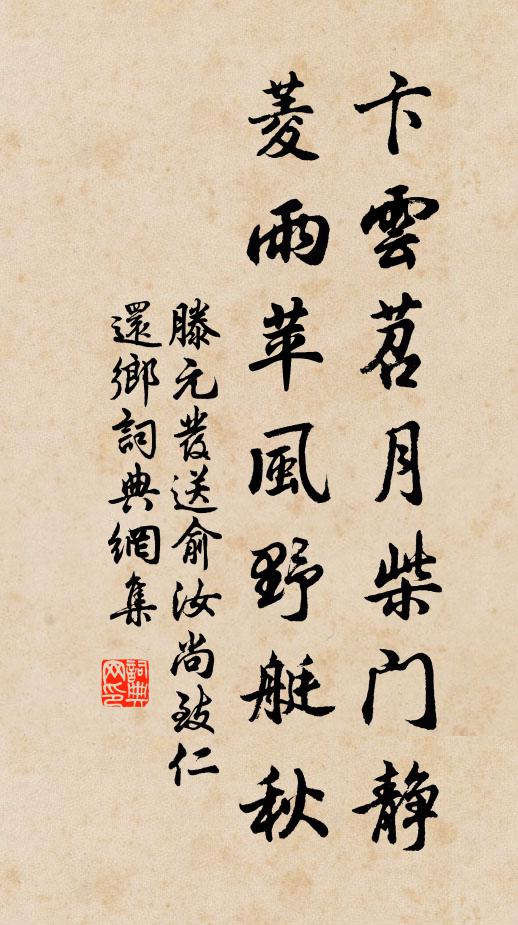 卞雲苕月柴门静
菱雨苹風野艇秋
滕元發送俞汝尚致仁
還鄉詞典網集
詞典网印